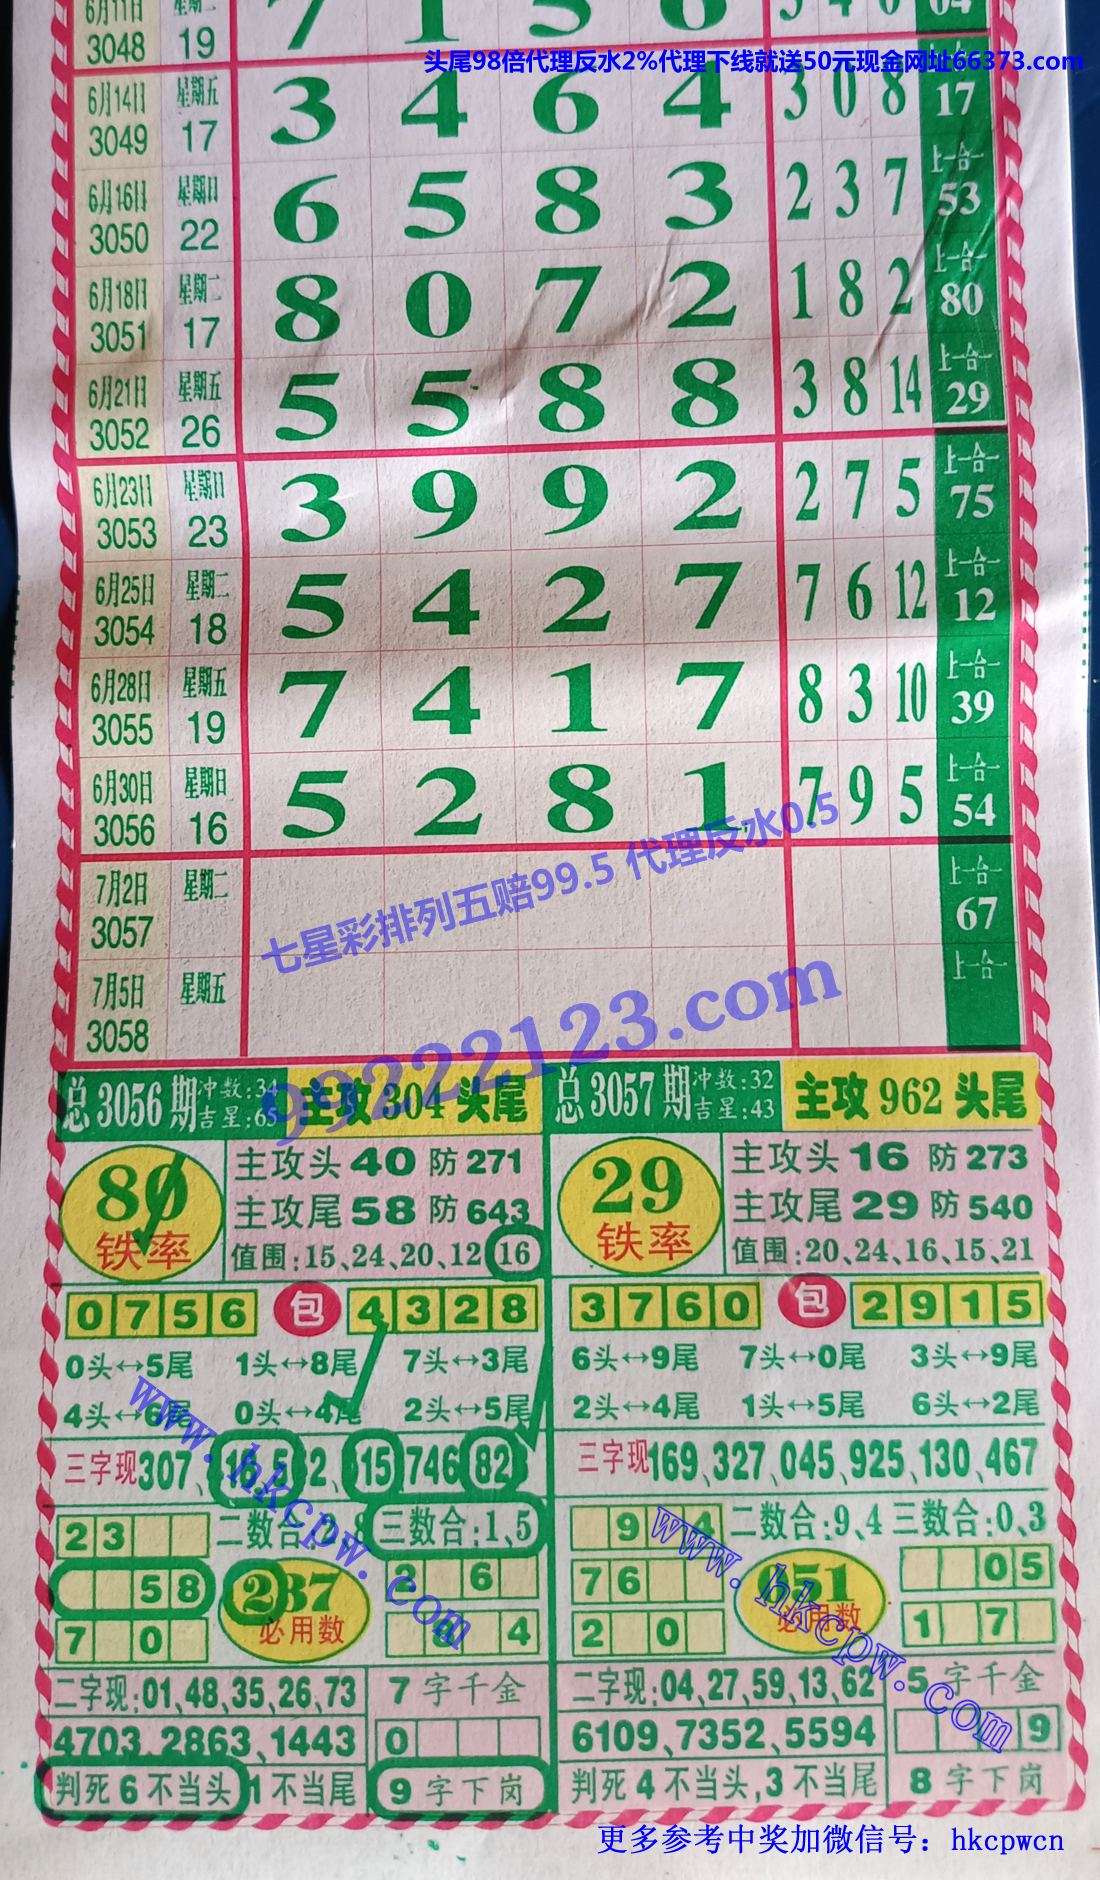 6月11日 星期二 7 1 5 6 3 4 6 04
3048 19
头尾98倍代理反水2%代理下线就送50元现金网址66373.com
6月14日 星期五 3 4 6 4 3 0 8 17
3049 17
6月16日 星期日 6 5 8 3 2 3 7 上合 53
3050 22
6月18日 星期二 8 0 7 2 1 8 2 上合 80
3051 17
6月21日 星期五 5 5 8 8 3 8 14 上合 29
3052 26
6月23日 星期日 3 9 9 2 2 7 5 上合 75
3053 23
6月25日 星期二 5 4 2 7 7 6 12 上合 12
3054 18
6月28日 星期五 7 4 1 7 8 3 10 上合 39
3055 19
6月30日 星期日 5 2 8 1 7 9 5 上合 54
3056 16
7月2日 星期二 上合 67
3057
七星彩排列五赔99.5 代理反水0.5
7月5日 星期五 上合
3058
99222123.com
总3056期 冲数:34 吉星:65 主攻304头尾
80 铁率
主攻头40 防271
主攻尾58 防643
值围:15,24,20,12 16
0756 包 4328
0头↔5尾 1头↔8尾 7头↔3尾
4头↔6尾 0头↔4尾 2头↔5尾
三字现307、 2、 15 746 82
23 二数合: 三数合:1,5
58 237 必用数 2 6
7 0 4
二字现:01,48,35,26,73 7字千金
4703,2863,1443 0
判死6不当头 1不当尾 9字下岗
总3057期 冲数:32 吉星:43 主攻962头尾
29 铁率
主攻头16 防273
主攻尾29 防540
值围:20,24,16,15,21
3760 包 2915
6头↔9尾 7头↔0尾 3头↔9尾
2头↔4尾 1头↔5尾 6头↔2尾
三字现169、327、045、925、130、467
9 4 二数合:9,4 三数合:0,3
76 651 必用数 05
2 0 1 7
二字现:04,27,59,13,62 5字千金
6109,7352,5594 9
判死4不当头,3不当尾 8字下岗
www.hkcpw.com
www.hkcpw.com
更多参考中奖加微信号：hkcpwcn